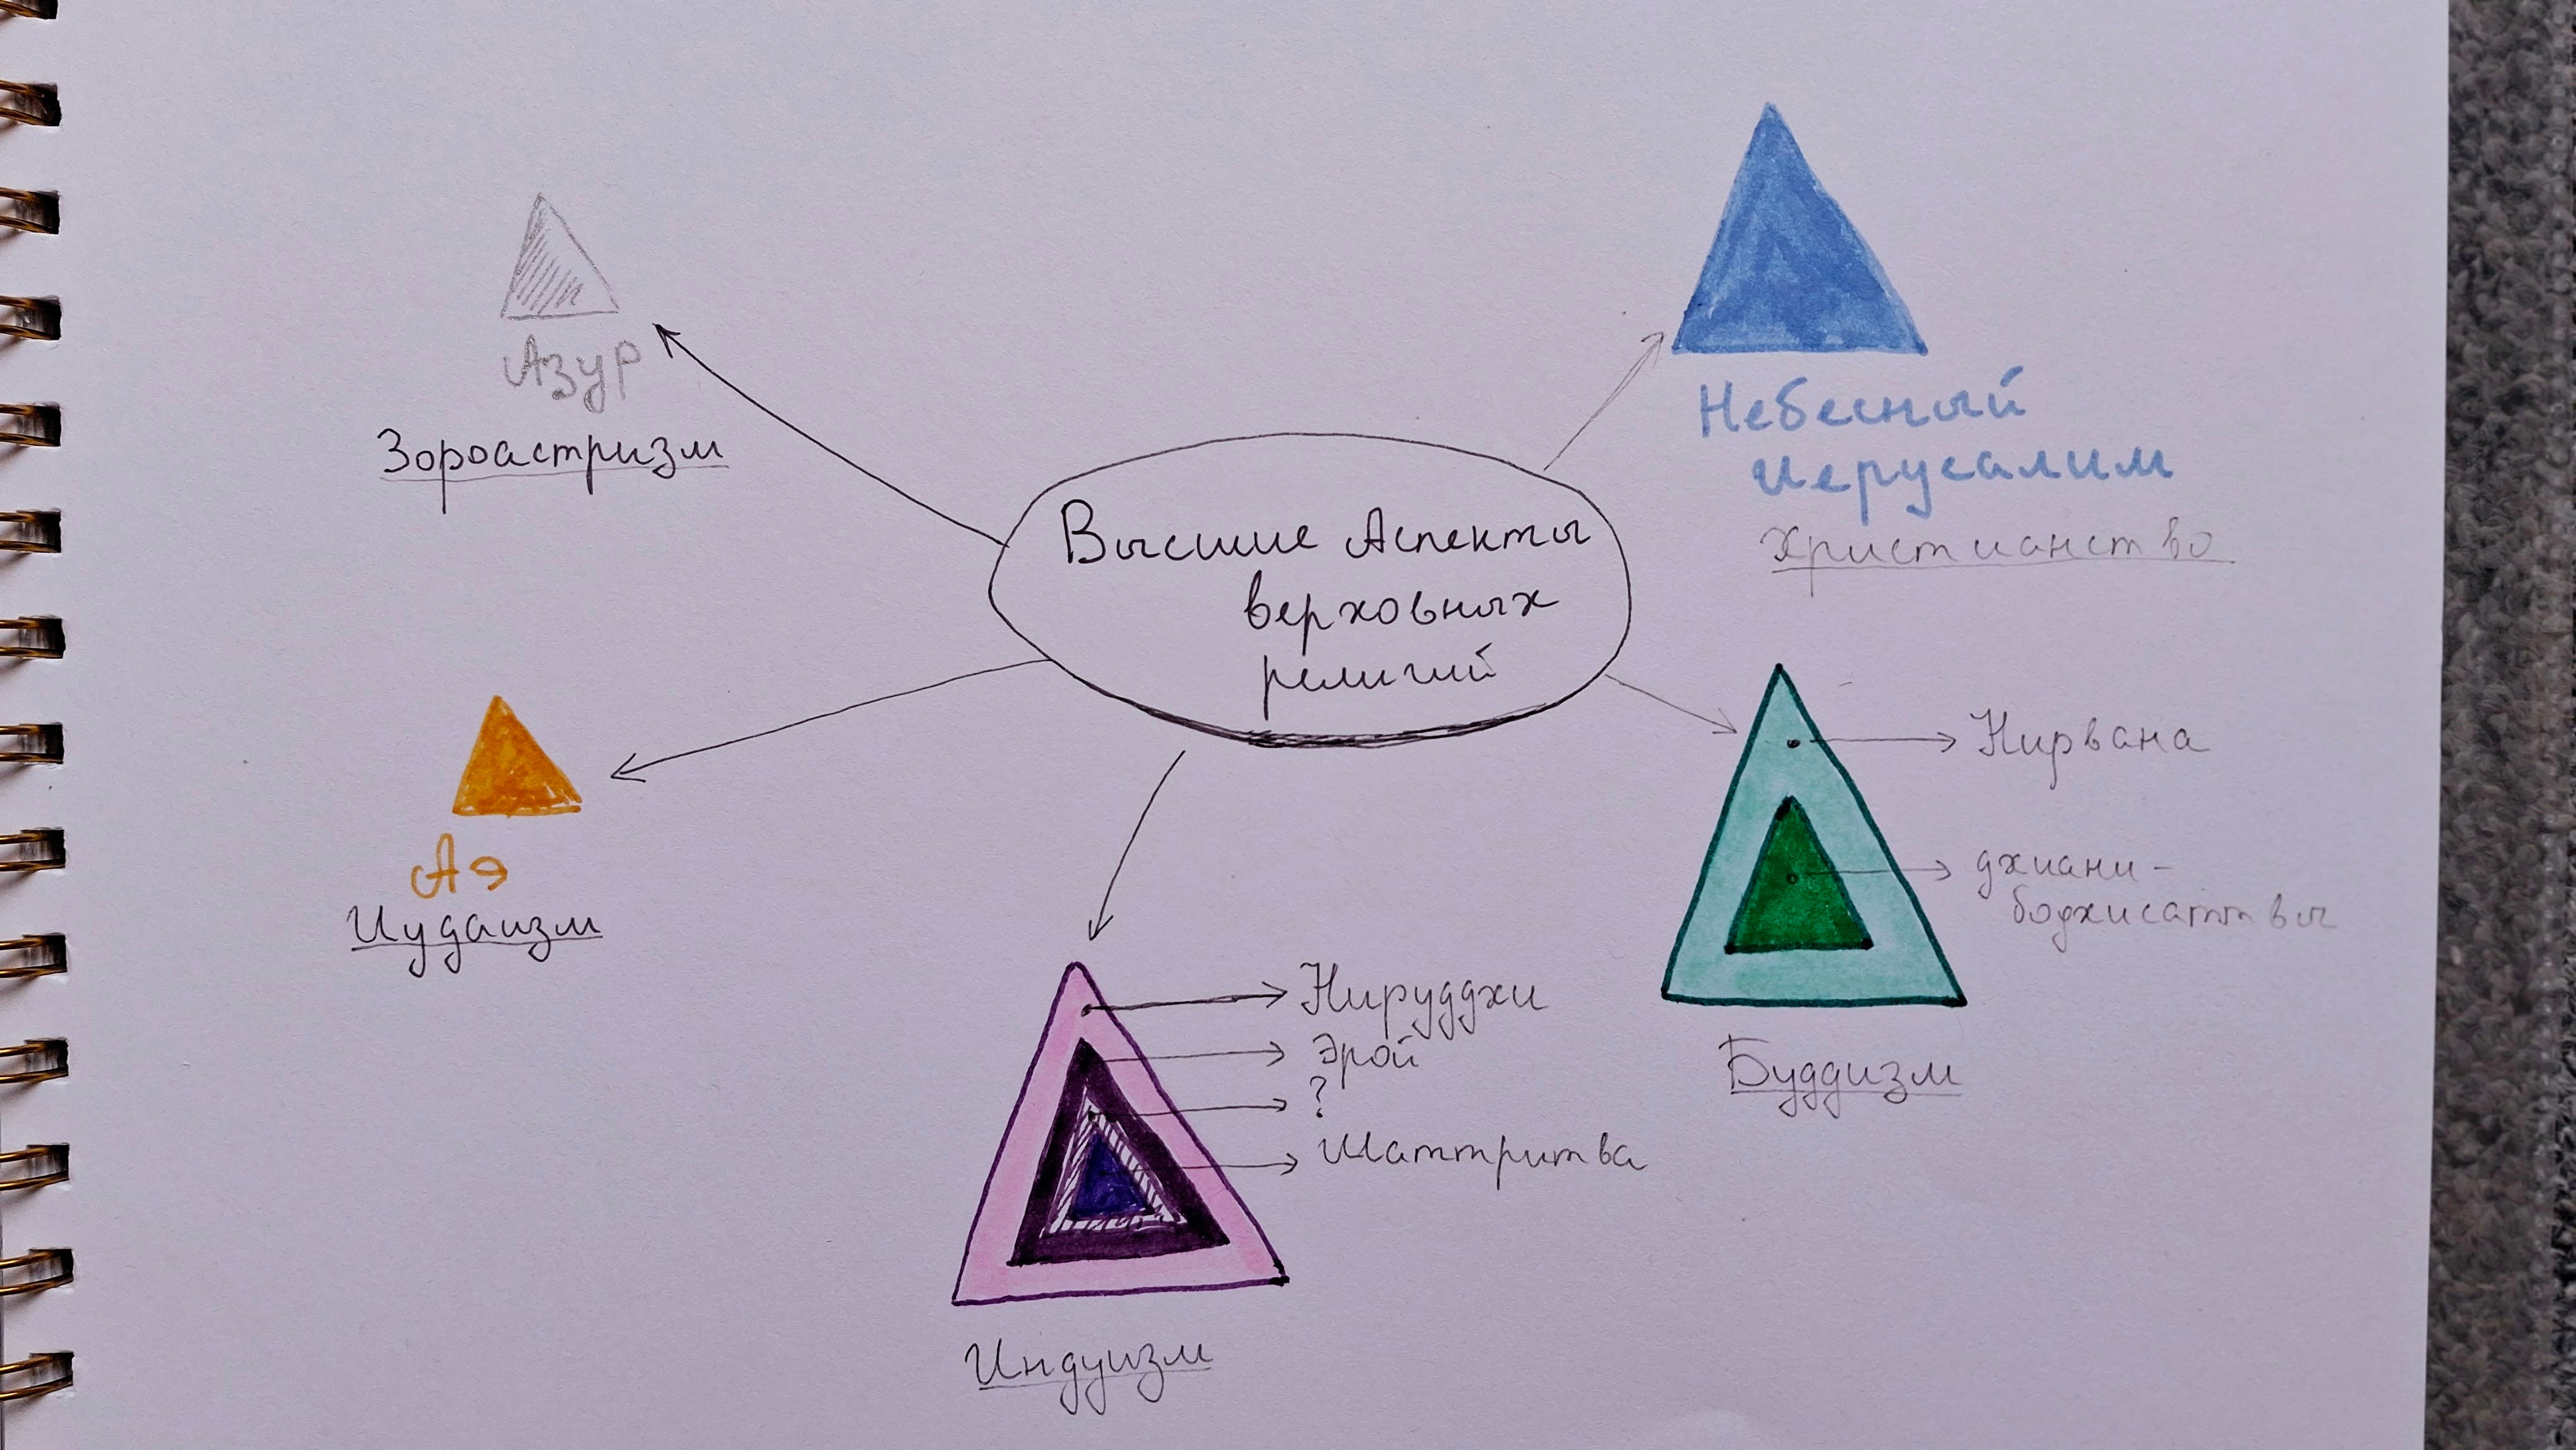 Высшие Аспекты
верховных
религий
Азур
Зороастризм
Небесный
Иерусалим
Христианство
Аэ
Иудаизм
Нирвана
джиани-
бодхисаттвы
Буддизм
Нируддхи
Эрой
?
Шаттритва
Индуизм